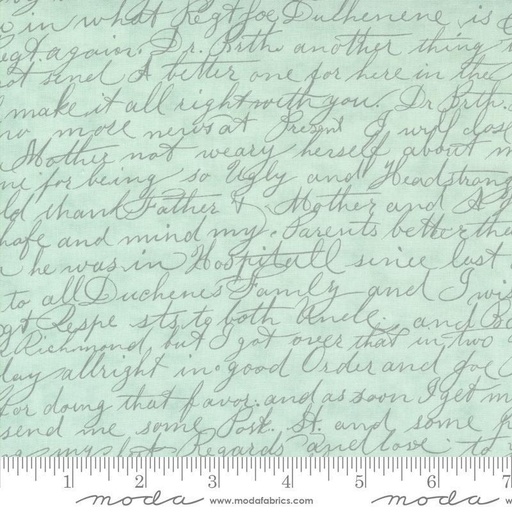 in what Regt Joe Duchenene is
Regt again. Dr. Brth. another thing
not send A better one for here in the
make it all right with you. Dr Brth.
no more news at Present I will close
Mother not weary herself about
for being so Ugly and Headstrong
thank Father & Mother and A
and mind my Parents better
he was in Hoospitall since last
to all Duchenes Family and I wis
Respe sts to both Uncle. and
Richmond but I got over that in two
day allright in good Order and Joe
for doing that favor. and as soon I get
send me some Post. St. and some
Regards and love to
1 2 3 4 5 6 7
moda www.modafabrics.com moda